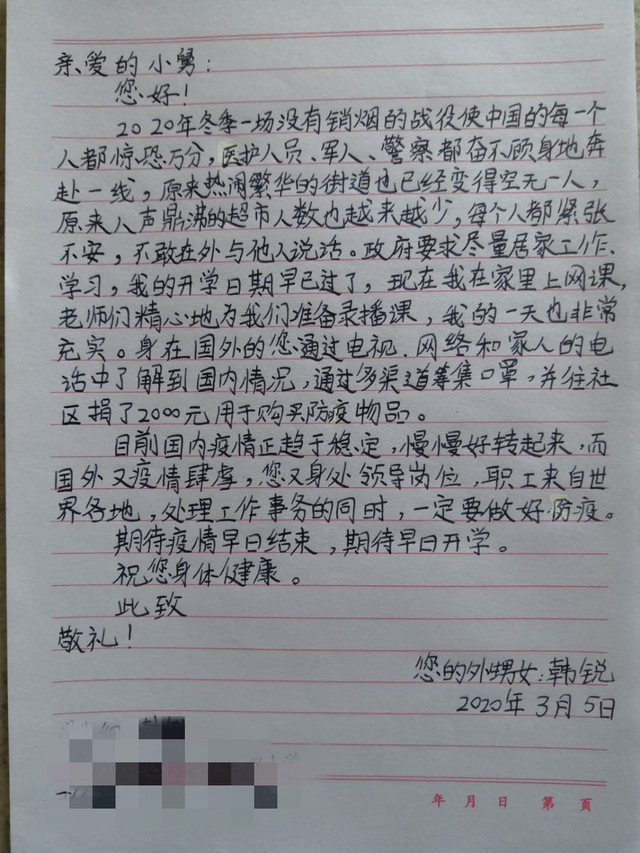 亲爱的小舅：
您好！
2020年冬季一场没有销烟的战役使中国的每一个
人都惊恐万分，医护人员、军人、警察都奋不顾身地奔
赴一线，原来热闹繁华的街道也已经变得空无一人，
原来人声鼎沸的超市人数也越来越少，每个人都紧张
不安，不敢在外与他人说话。政府要求尽量居家工作、
学习，我的开学日期早已过了，现在我在家里上网课，
老师们精心地为我们准备录播课，我的一天也非常
充实。身在国外的您通过电视、网络和家人的电
话中了解到国内情况，通过多渠道筹集口罩，并往社
区捐了20000元用于购买防疫物品。
目前国内疫情正趋于稳定，慢慢好转起来，而
国外又疫情肆虐，您又身处领导岗位，职工来自世
界各地，处理工作事务的同时，一定要做好防疫。
期待疫情早日结束，期待早日开学。
祝您身体健康。
此致
敬礼！
您的外甥女：韩锐
2020年3月5日
年 月 日 第 页